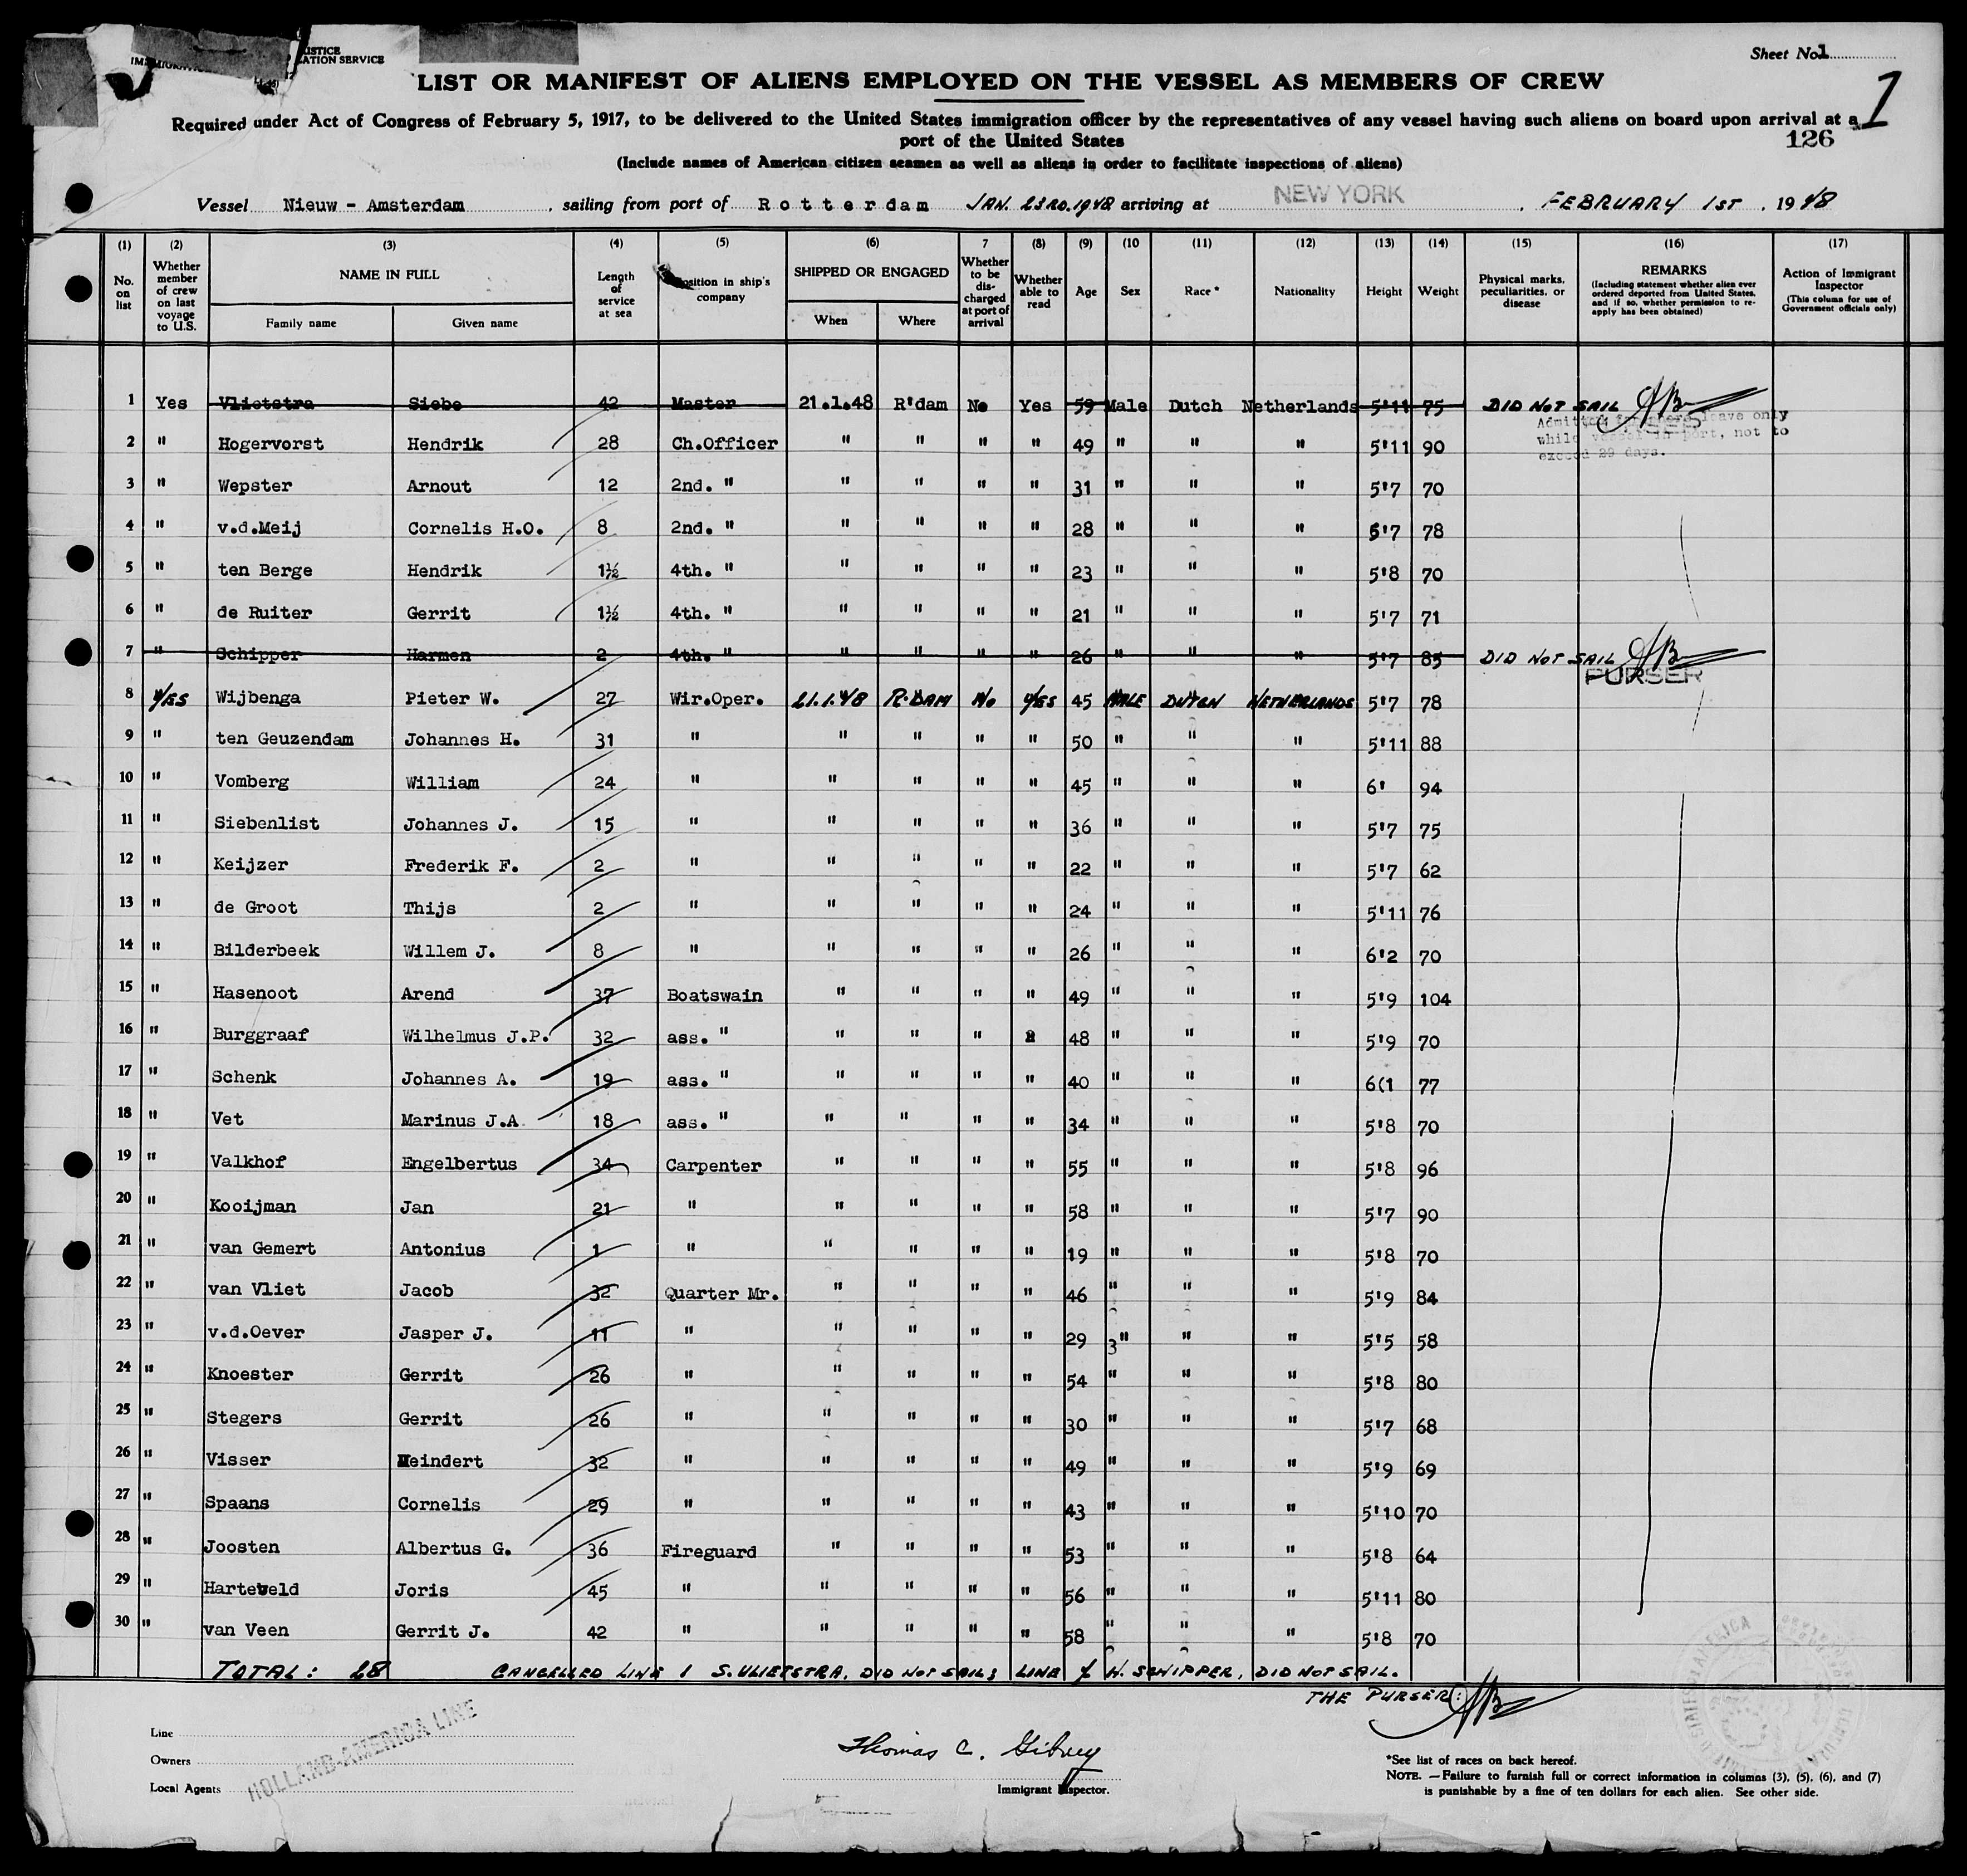 USTICE
ATION SERVICE
Sheet No. 1
LIST OR MANIFEST OF ALIENS EMPLOYED ON THE VESSEL AS MEMBERS OF CREW
1
Required under Act of Congress of February 5, 1917, to be delivered to the United States immigration officer by the representatives of any vessel having such aliens on board upon arrival at a
port of the United States
126
(Include names of American citizen seamen as well as aliens in order to facilitate inspections of aliens)
Vessel Nieuw - Amsterdam, sailing from port of Rotterdam JAN. 23RD. 1948 arriving at NEW YORK, FEBRUARY 1ST, 1948
(1) (2) (3) (4) (5) (6) 7 (8) (9) (10 (11) (12) (13) (14) (15) (16) (17)
No. on list Whether member of crew on last voyage to U.S. NAME IN FULL Family name Given name Length of service at sea Position in ship's company SHIPPED OR ENGAGED When Where Whether to be discharged at port of arrival Whether able to read Age Sex Race * Nationality Height Weight Physical marks, peculiarities, or disease REMARKS (Including statement whether alien ever ordered deported from United States, and if so, whether permission to reapply has been obtained) Action of Immigrant Inspector (This column for use of Government officials only)
1 Yes Vlietstra Siebe 42 Master 21.1.48 R'dam No Yes 59 Male Dutch Netherlands 5'11 75 DID NOT SAIL
Admitted for shore leave only
while vessel in port, not to
exceed 29 days.
2 " Hogervorst Hendrik 28 Ch.Officer " " " " 49 " " " 5'11 90
3 " Wepster Arnout 12 2nd. " " " " " 31 " " " 5'7 70
4 " v.d.Meij Cornelis H.O. 8 2nd. " " " " " 28 " " " 5'7 78
5 " ten Berge Hendrik 1½ 4th. " " " " " 23 " " " 5'8 70
6 " de Ruiter Gerrit 1½ 4th. " " " " " 21 " " " 5'7 71
7 " Schipper Harmen 2 4th. " " " " " 26 " " " 5'7 85 DID NOT SAIL
PURSER
8 YES Wijbenga Pieter W. 27 Wir.Oper. 21.1.48 R.DAM No YES 45 MALE DUTCH NETHERLANDS 5'7 78
9 " ten Geuzendam Johannes H. 31 " " " " " 50 " " " 5'11 88
10 " Vomberg William 24 " " " " " 45 " " " 6' 94
11 " Siebenlist Johannes J. 15 " " " " " 36 " " " 5'7 75
12 " Keijzer Frederik F. 2 " " " " " 22 " " " 5'7 62
13 " de Groot Thijs 2 " " " " " 24 " " " 5'11 76
14 " Bilderbeek Willem J. 8 " " " " " 26 " " " 6'2 70
15 " Hasenoot Arend 37 Boatswain " " " " 49 " " " 5'9 104
16 " Burggraaf Wilhelmus J.P. 32 ass. " " " " " 48 " " " 5'9 70
17 " Schenk Johannes A. 19 ass. " " " " " 40 " " " 6(1 77
18 " Vet Marinus J.A 18 ass. " " " " " 34 " " " 5'8 70
19 " Valkhof Engelbertus 34 Carpenter " " " " 55 " " " 5'8 96
20 " Kooijman Jan 21 " " " " " 58 " " " 5'7 90
21 " van Gemert Antonius 1 " " " " " 19 " " " 5'8 70
22 " van Vliet Jacob 32 Quarter Mr. " " " " 46 " " " 5'9 84
23 " v.d.Oever Jasper J. 11 " " " " " 29 3" " " 5'5 58
24 " Knoester Gerrit 26 " " " " " 54 " " " 5'8 80
25 " Stegers Gerrit 26 " " " " " 30 " " " 5'7 68
26 " Visser Meindert 32 " " " " " 49 " " " 5'9 69
27 " Spaans Cornelis 29 " " " " " 43 " " " 5'10 70
28 " Joosten Albertus G. 36 Fireguard " " " " 53 " " " 5'8 64
29 " Harteveld Joris 45 " " " " " 56 " " " 5'11 80
30 " van Veen Gerrit J. 42 " " " " " 58 " " " 5'8 70
TOTAL: 28 CANCELLED LINE 1 S. VLIETSTRA, DID NOT SAIL; LINE 7 H. SCHIPPER, DID NOT SAIL.
THE PURSER:
Line
Owners
Local Agents
HOLLAND-AMERICA LINE
Thomas C. Gibney
Immigrant Inspector.
*See list of races on back hereof.
NOTE. — Failure to furnish full or correct information in columns (3), (5), (6), and (7)
is punishable by a fine of ten dollars for each alien. See other side.